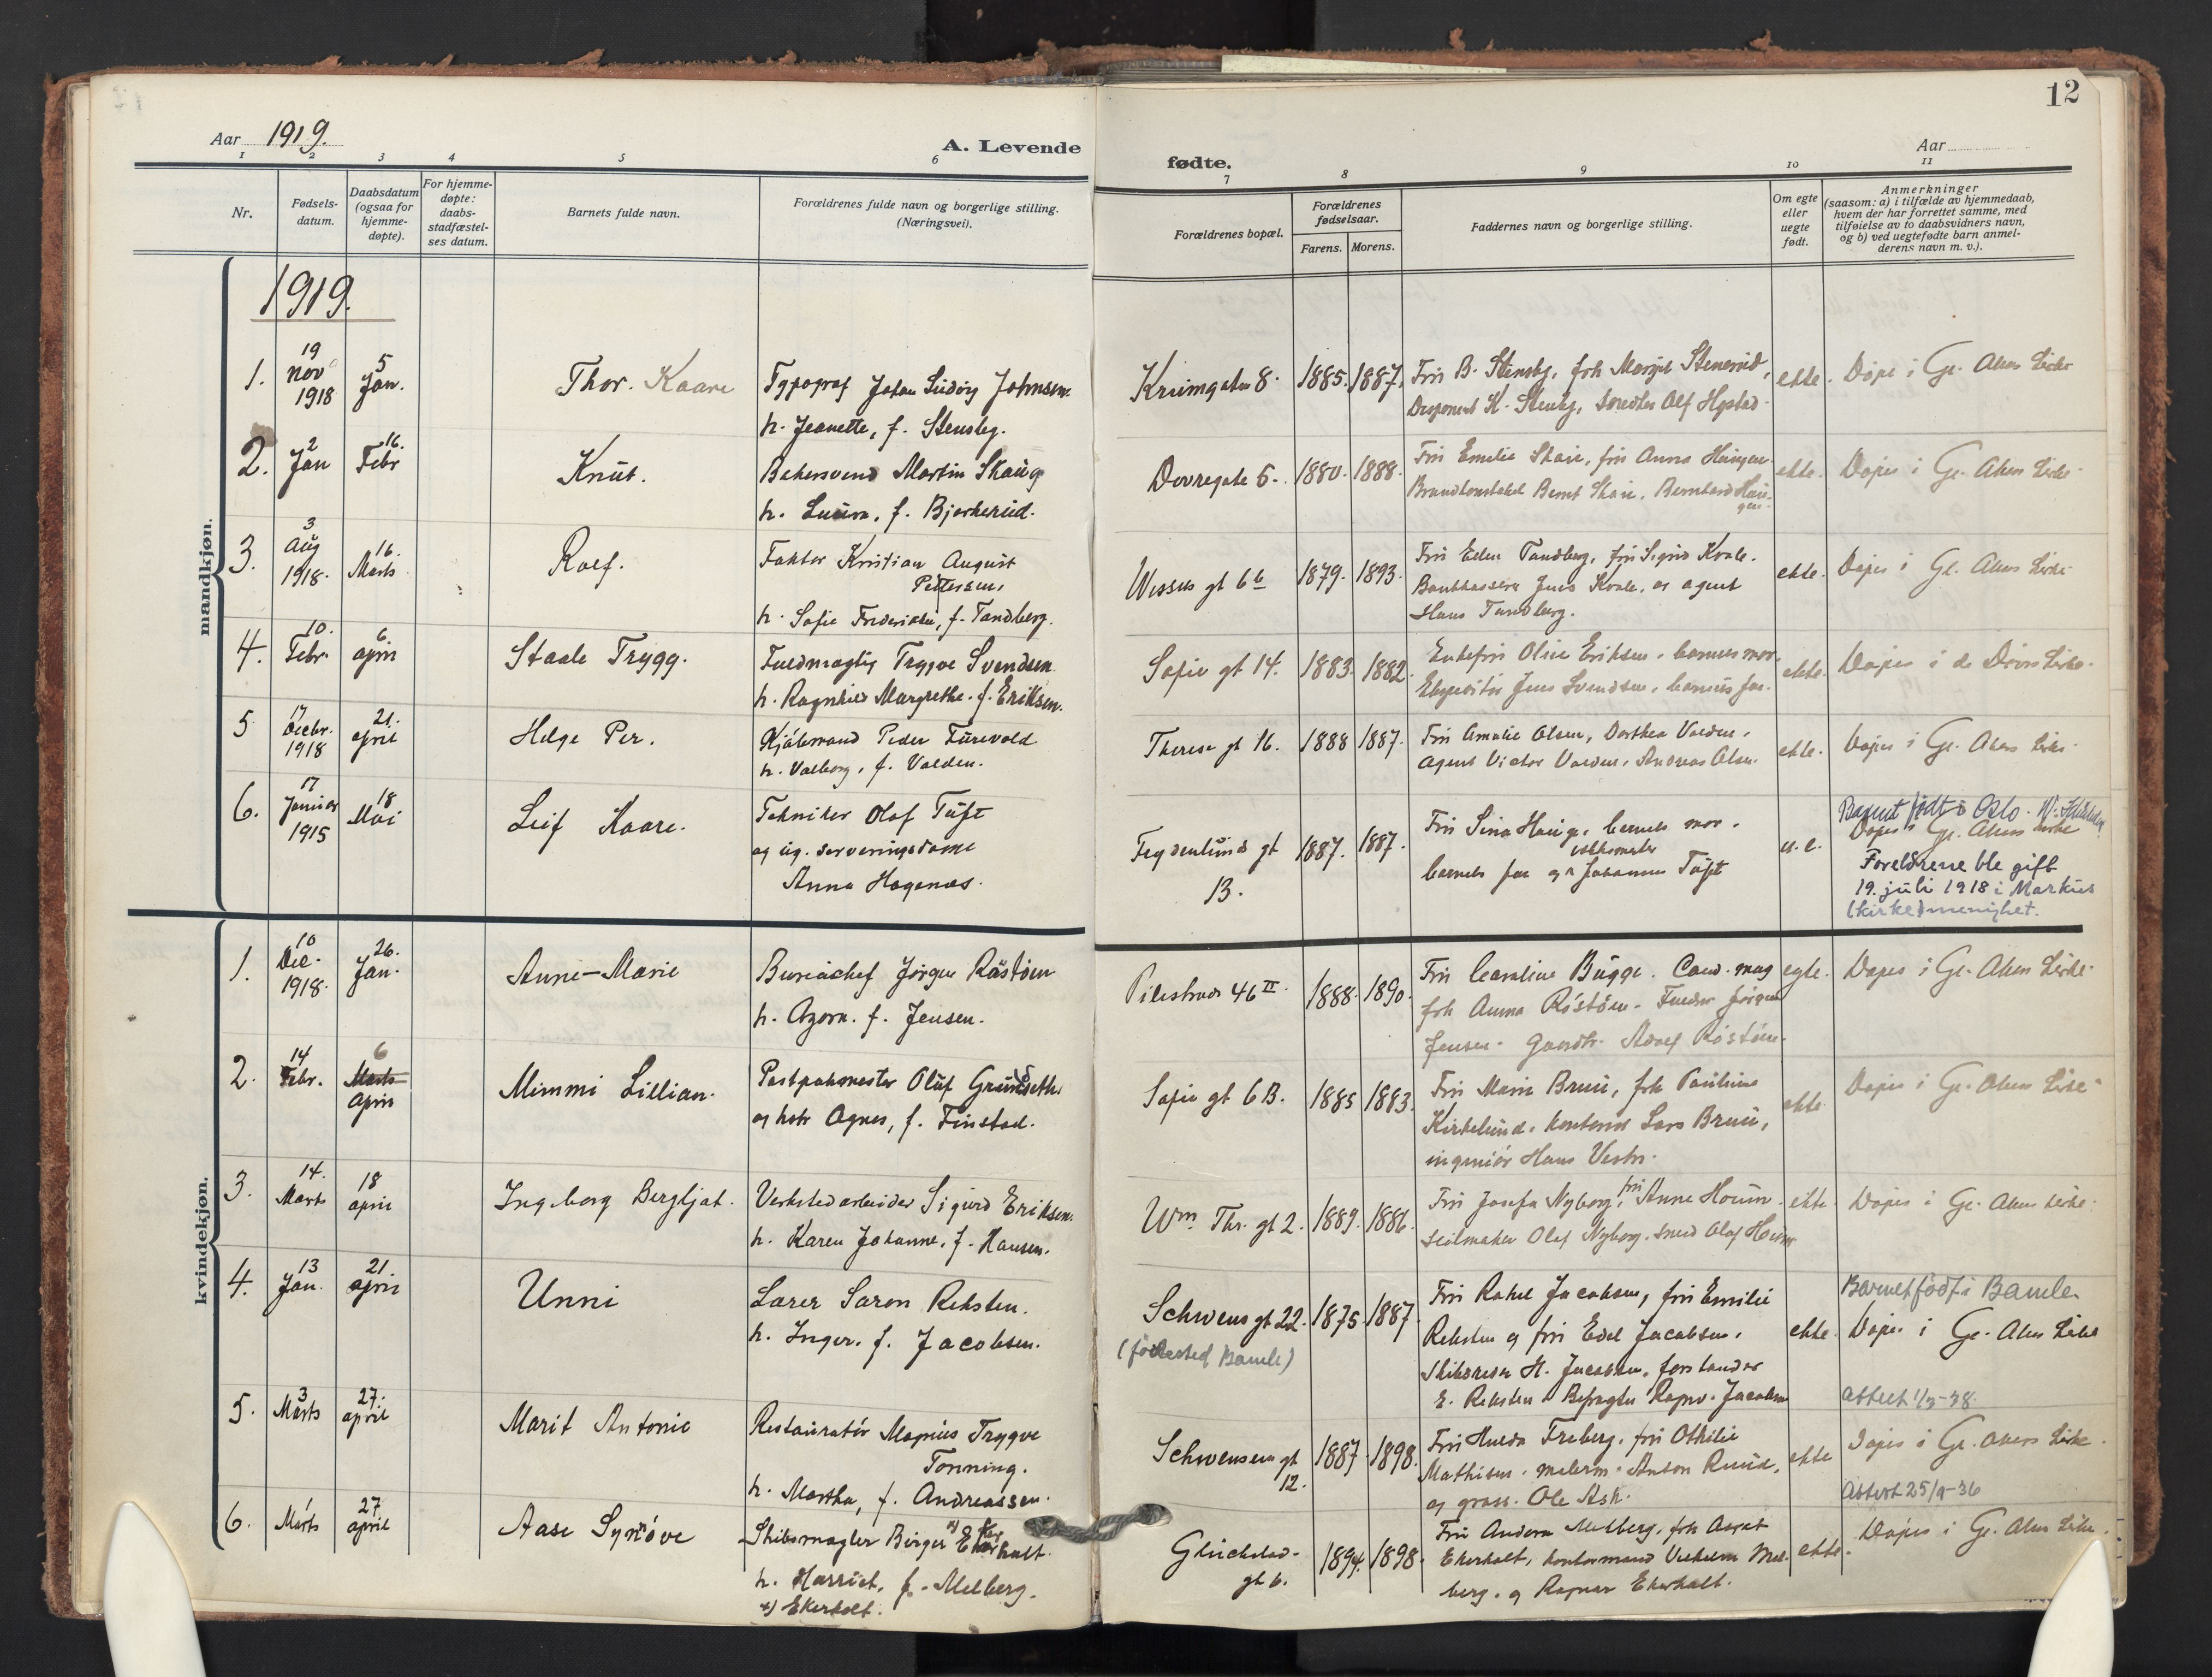 12
Aar 1919.
A. Levende
fødte.
Aar
1 2 3 4 5 6 7 8 9 10 11
Nr.
Fødsels-
datum.
Daabsdatum
(ogsaa for
hjemme-
døpte).
For hjemme-
døpte:
daabs-
stadfæstel-
ses datum.
Barnets fulde navn.
Forældrenes fulde navn og borgerlige stilling.
(Næringsvei).
Forældrenes bopæl.
Forældrenes
fødselsaar.
Farens. Morens.
Faddernes navn og borgerlige stilling.
Om egte
eller
uegte
født.
Anmerkninger
(saasom: a) i tilfælde av hjemmedaab,
hvem der har forrettet samme, med
tilføielse av to daabsvidners navn,
og b) ved uegtefødte barn anmel-
derens navn m. v.).
mandkjøn.
1919.
1.
19
Nov
1918
5
Jan.
Thor. Kaare
Typograf Johan Ludvig Johnsen
h. Jeanette, f. Stensby.
Krumgaten 8.
1885. 1887.
Fru B. Stensby, frk Margit Stenerud,
Disponent K. Stensby,
ekte.
Døpt i Gl. Akers Kirke
2.
2
Jan
16.
Febr
Knut.
Bakersvend Martin Skaug
h. Laura, f. Bjerkerud.
Dovregate 6.
1880. 1888.
Fru Emilie Skau, fru Anna Haugen
Brandkonstabel Bernt Skau, Bernhard Hau-
gen.
ekte.
Døpt i Gl. Akers Kirke
3.
3
Aug
1918.
16.
Marts
Rolf.
Faktor Kristian August
Pettersen,
h. Sofie Fredrikke, f. Tandberg.
Wessels gt 6b
1879. 1893.
Fru Eden Tandberg, fru Sigrid Kvale.
Bankkasserer Jens Kvale, og agent
Hans Tandberg.
ekte.
Døpt i Gl. Akers Kirke
4.
10.
Febr.
6
april
Staale Trygg.
Fuldmægtig Trygve Svendsen
h. Ragnhild Margrethe. f. Eriksen.
Sofie gt 14.
1883. 1882.
Enkefru Oline Eriksen, barnets mor.
Ekspeditør Jens Svendsen, barnets far.
ekte.
Døpt i
5
17
Decbr.
1918
21.
april
Helge Per.
Peder Furevold
h. Valborg, f. Valden.
Therese gt 16.
1888 1887.
Fru Amalie Olsen, Dorthea Valden,
Agent Victor Valden, Andreas Olsen.
ekte.
Døpt i Gl. Akers Kirke
6.
17
Januar
1915
18
Mai
Leif Kaare.
Tekniker Olaf Tuft
og ug. serveringsdame
Anna Hagenæs.
Frydenlunds gt
13.
1887. 1887.
Fru Sina Hauge, barnets mor.
barnets far og Johannes Tuft
u. e.
Barnet født i Oslo.
Døpt i Gl. Akers Kirke
Foreldrene ble gift
19. juli 1918 i Markus
(kirke)menighet.
kvindekjøn.
1.
10
Dec.
1918.
26.
Jan.
Anne-Marie
Bureauchef Jørgen Røstöen
h. Agora. f. Jensen.
Pilestrædet 46 II.
1888. 1890.
Fru Caroline Bugge. Cand. mag
frk Anna Röstöen. Jörgen
Jensen. Gaardbr. Adolf Röstöen.
egte.
Døpt i Gl. Akers Kirke
2.
14
Febr.
6
Marts
April
Mimmi Lillian.
Postpakmester Oluf Grundseth
og hstr Agnes, f. Finstad.
Sofie gt 6B.
1885 1883.
Fru Marie Bruu, frk Pauline
Kirkelund. kontorist Lars Bruu,
ingeniör Hans Vestn.
ekte
Døpt i Gl. Akers Kirke
3.
14.
Marts
18
april
Ingeborg Bergljot.
Verkstedarbeider Sigurd Eriksen.
h. Karen Johanne, f. Hansen.
Wm. Thr. gt 2.
1889. 1886.
Fru Josefa Nyborg, fru Anne Houm
seilmaker Olaf Nyborg, smed Olaf Houm
ekte.
Døpt i Gl. Akers Kirke.
4.
13
Jan.
21.
april
Unni
Lærer Saron Reksten.
h. Inger. f. Jacobsen.
Schwens gt 22.
(födested Bamle)
1875. 1887.
Fru Rakel Jacobsen, fru Emilie
Reksten og fru Edel Jacobsen.
Skibsreder H. Jacobsen, forstander
E. Reksten Befragter Ragnv. Jacobsen
ekte.
Barnet født i Bamle
Døpt i Gl. Akers Kirke
Attest 1/3-38.
5.
3
Marts
27.
april
Marit Antonie
Restauratör Magnus Trygve
Tønning.
h. Martha, f. Andreassen.
Schwensens gt
12.
1887. 1898.
Fru Hulda Freberg, fru Othilie
Mathisen. malerm. Anton Ruud,
og gross. Ole Ask.
ekte
Døpt i Gl. Akers Kirke.
Attest 25/9-36
6.
1
Marts
27
april
Aase Synnöve
Skibsmægler Birger x) Ekerholt.
h. Harriet, f. Melberg.
x) Ekerholt.
Glückstad-
gt 6.
1894. 1898.
Fru Andora Melberg, frk Aagot
Ekerholt, kontormand Vilhelm Mel-
berg. og Ragnar Ekerholt.
ekte.
Døpt i Gl. Akers Kirke.